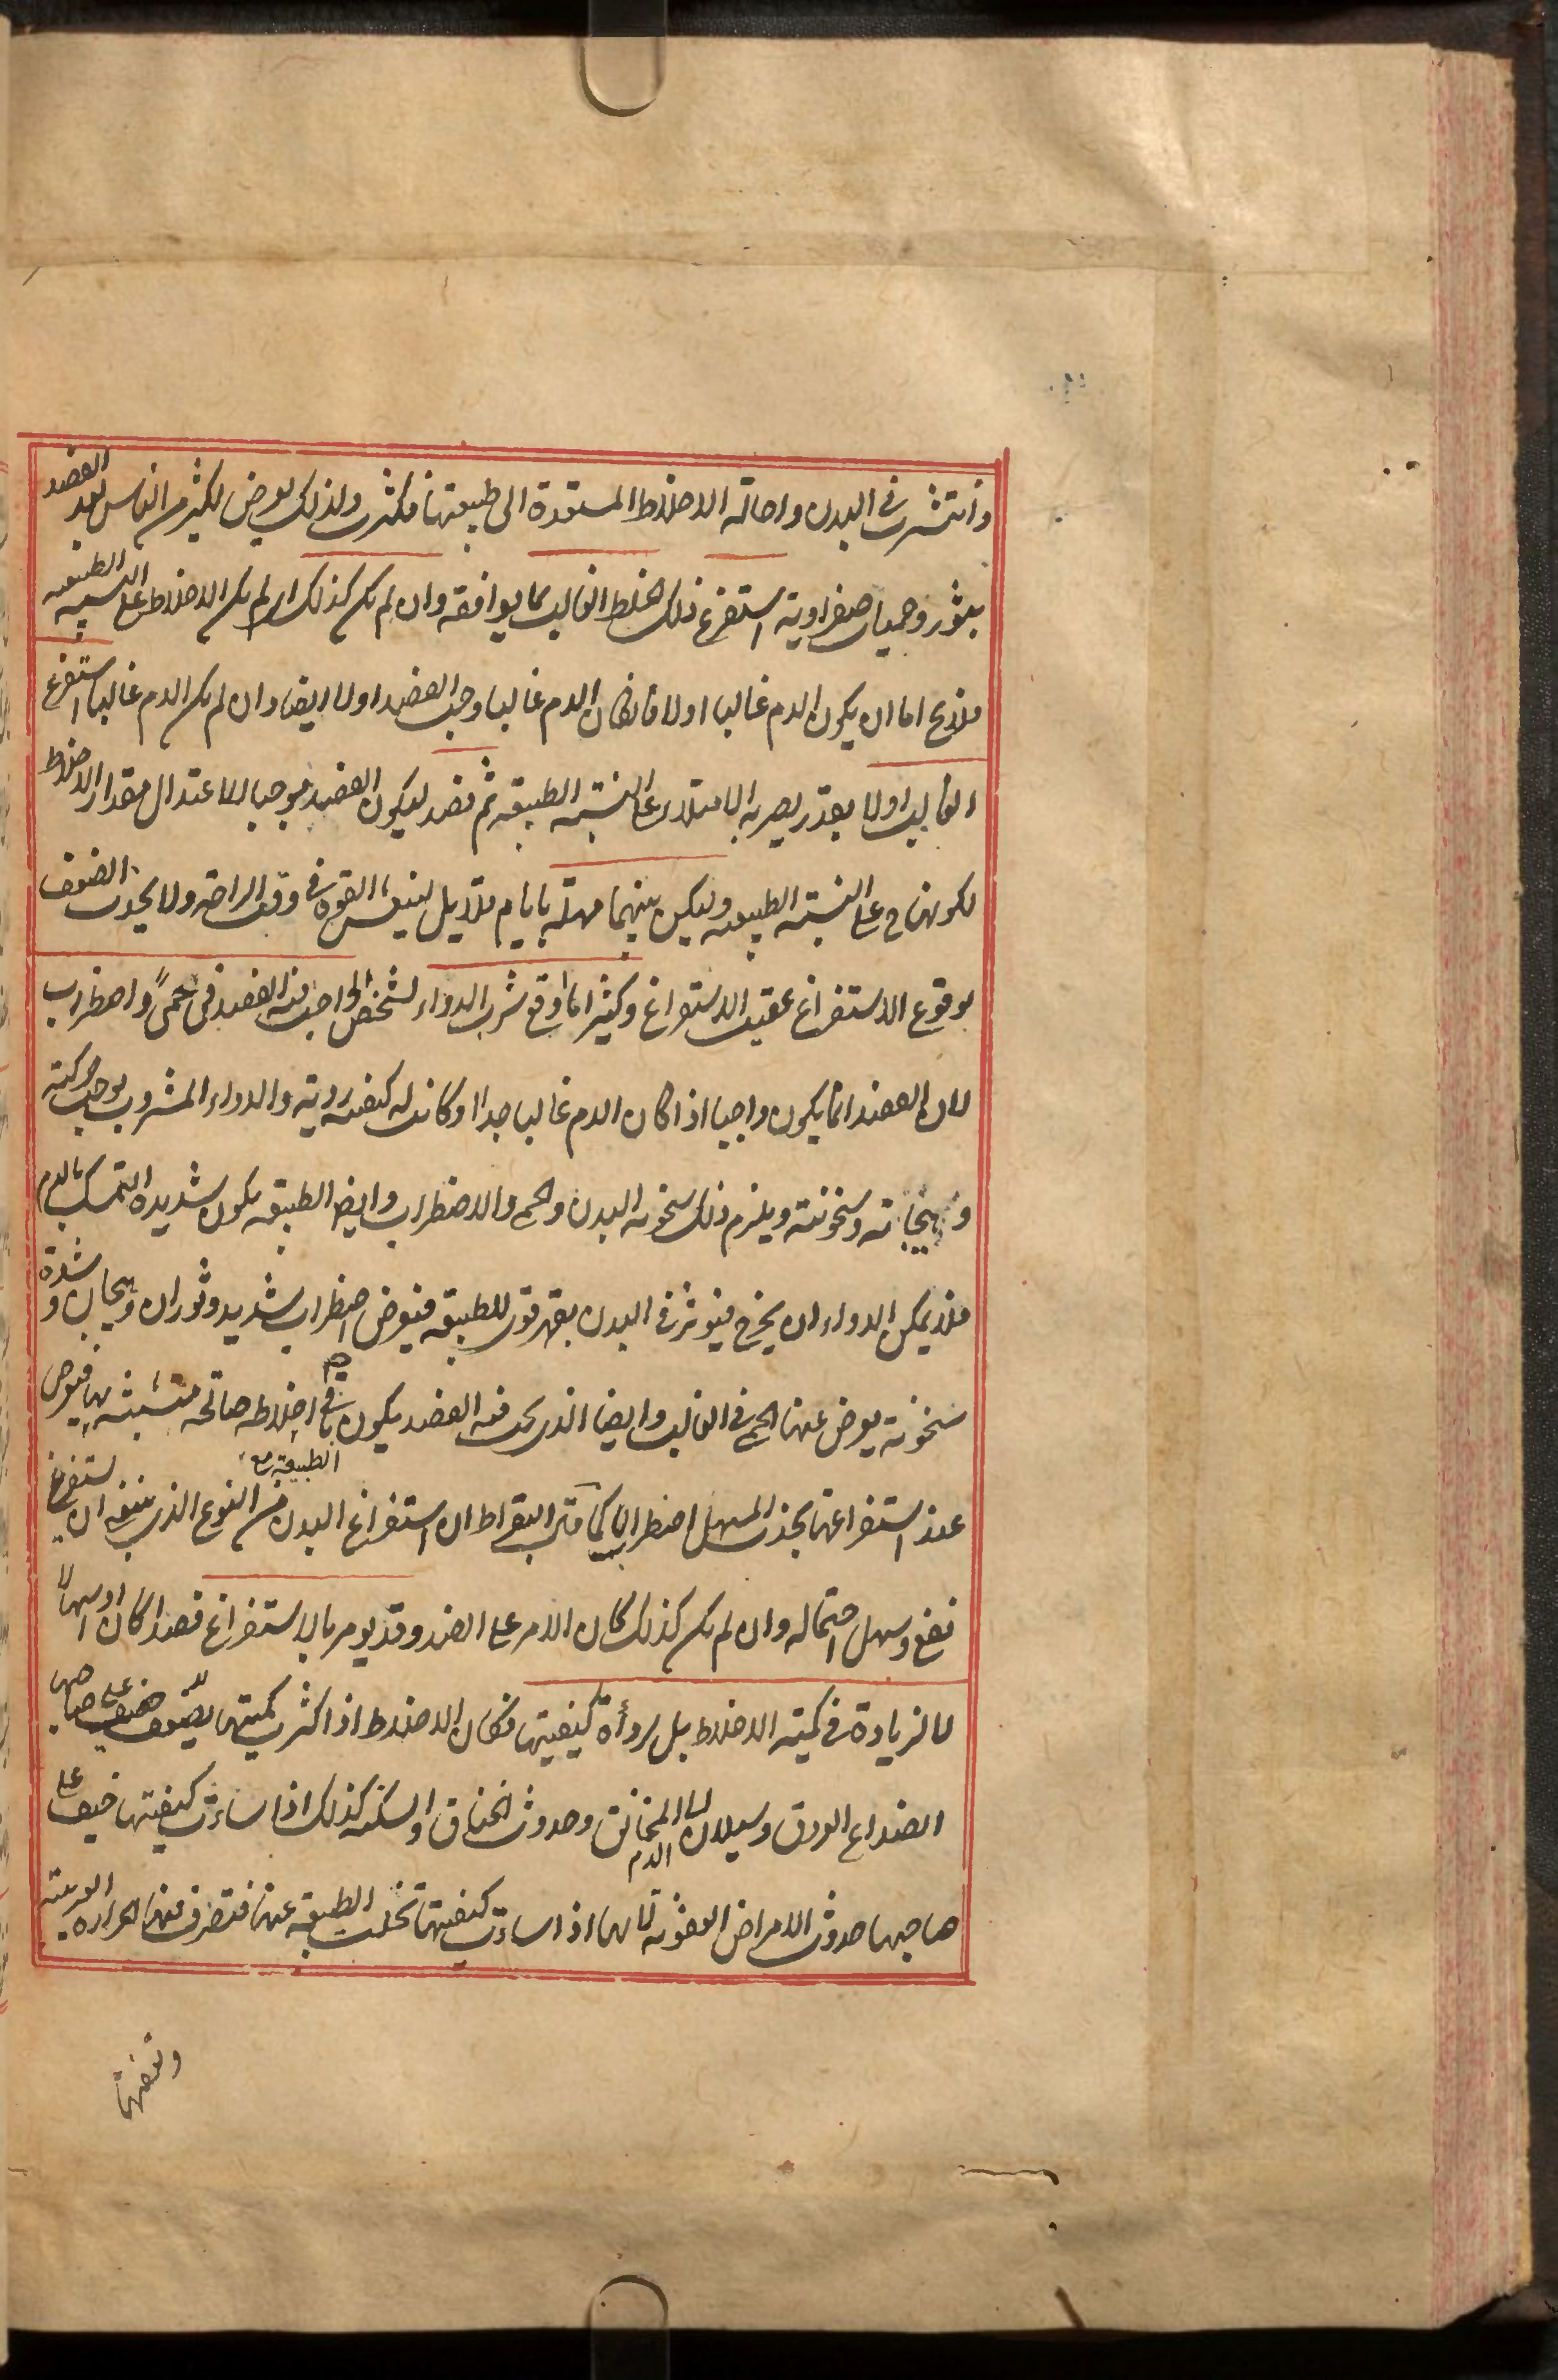 وانتشرت فى البدن واحالة الاخلاط المستعدة الى طبيعتها فكثرت ولذلك يعرض لكثير من الناس بعد الفصد
بثور وحميات صفراوية استفرغ ذلك الخلط الغالب بما يوافقه وان لم يكن كذلك اى لم يكن الاخلاط على النسبة الطبيعية
فلا يخ اما ان يكون الدم غالبا اولا فان كان الدم غالبا وجب الفصد اولا ايضا وان لم يكن الدم غالبا استفرغ
الغالب اولا بقدر يصير به الامتلاء على النسبة الطبيعية ثم فصد ليكون الفصد موجبا لاعتدال مقدار الاخلاط
لكونها ح على النسبة الطبيعية وليكن بينهما مهلة بايام قلايل لينتعش القوة فى وقت الراحة ولا يحدث الضعف
بوقوع الاستفراغ عقيب الاستفراغ وكثيرا ما اوقع شرب الدواء لشخص الواجب فيه الفصد فى حمى واضطراب
لان الفصد انما يكون واجبا اذا كان الدم غالبا جدا او كانت له كيفية ردية والدواء المشروب يوجب حركته
وهيجانه وسخونته ويلزم ذلك سخونة البدن والحمى والاضطراب وايضا الطبيعة يكون شديدة التمسك بالدم
فلا يمكن الدواء ان يخرج فيؤثر فى البدن بقهر قوى للطبيعة فيعرض اضطراب شديد وثوران وهيجان وشدة
سخونة يعرض عنها الحمى فى الغالب وايضا الذى يجب فيه الفصد يكون باقى اخلاطه صالحة متشبثة بها فيعرض
الطبيعة مع
عند استفراغها بجذب المسهل اضطراب كما قال بقراط ان استفراغ البدن من النوع الذى ينبغى ان يستفرغ
نفع وسهل احتماله وان لم يكن كذلك كان الامر على الضد وقد يومر بالاستفراغ فصدا كان او اسهالا
لا لزيادة فى كمية الاخلاط بل لرداءة كيفيتها فكان الاخلاط اذا كثرت كميتها خيف على صاحبها
انصداع العروق وسيلان الدم الى المخانق وحدوث الخناق والسكتة كذلك اذا ساءت كيفيتها خيف على
صاحبها حدوث الامراض العفونة لانها اذا ساءت كيفيتها تخلت الطبيعة عنها فتصرف فيها الحرارة الغريبة
وتعفنها